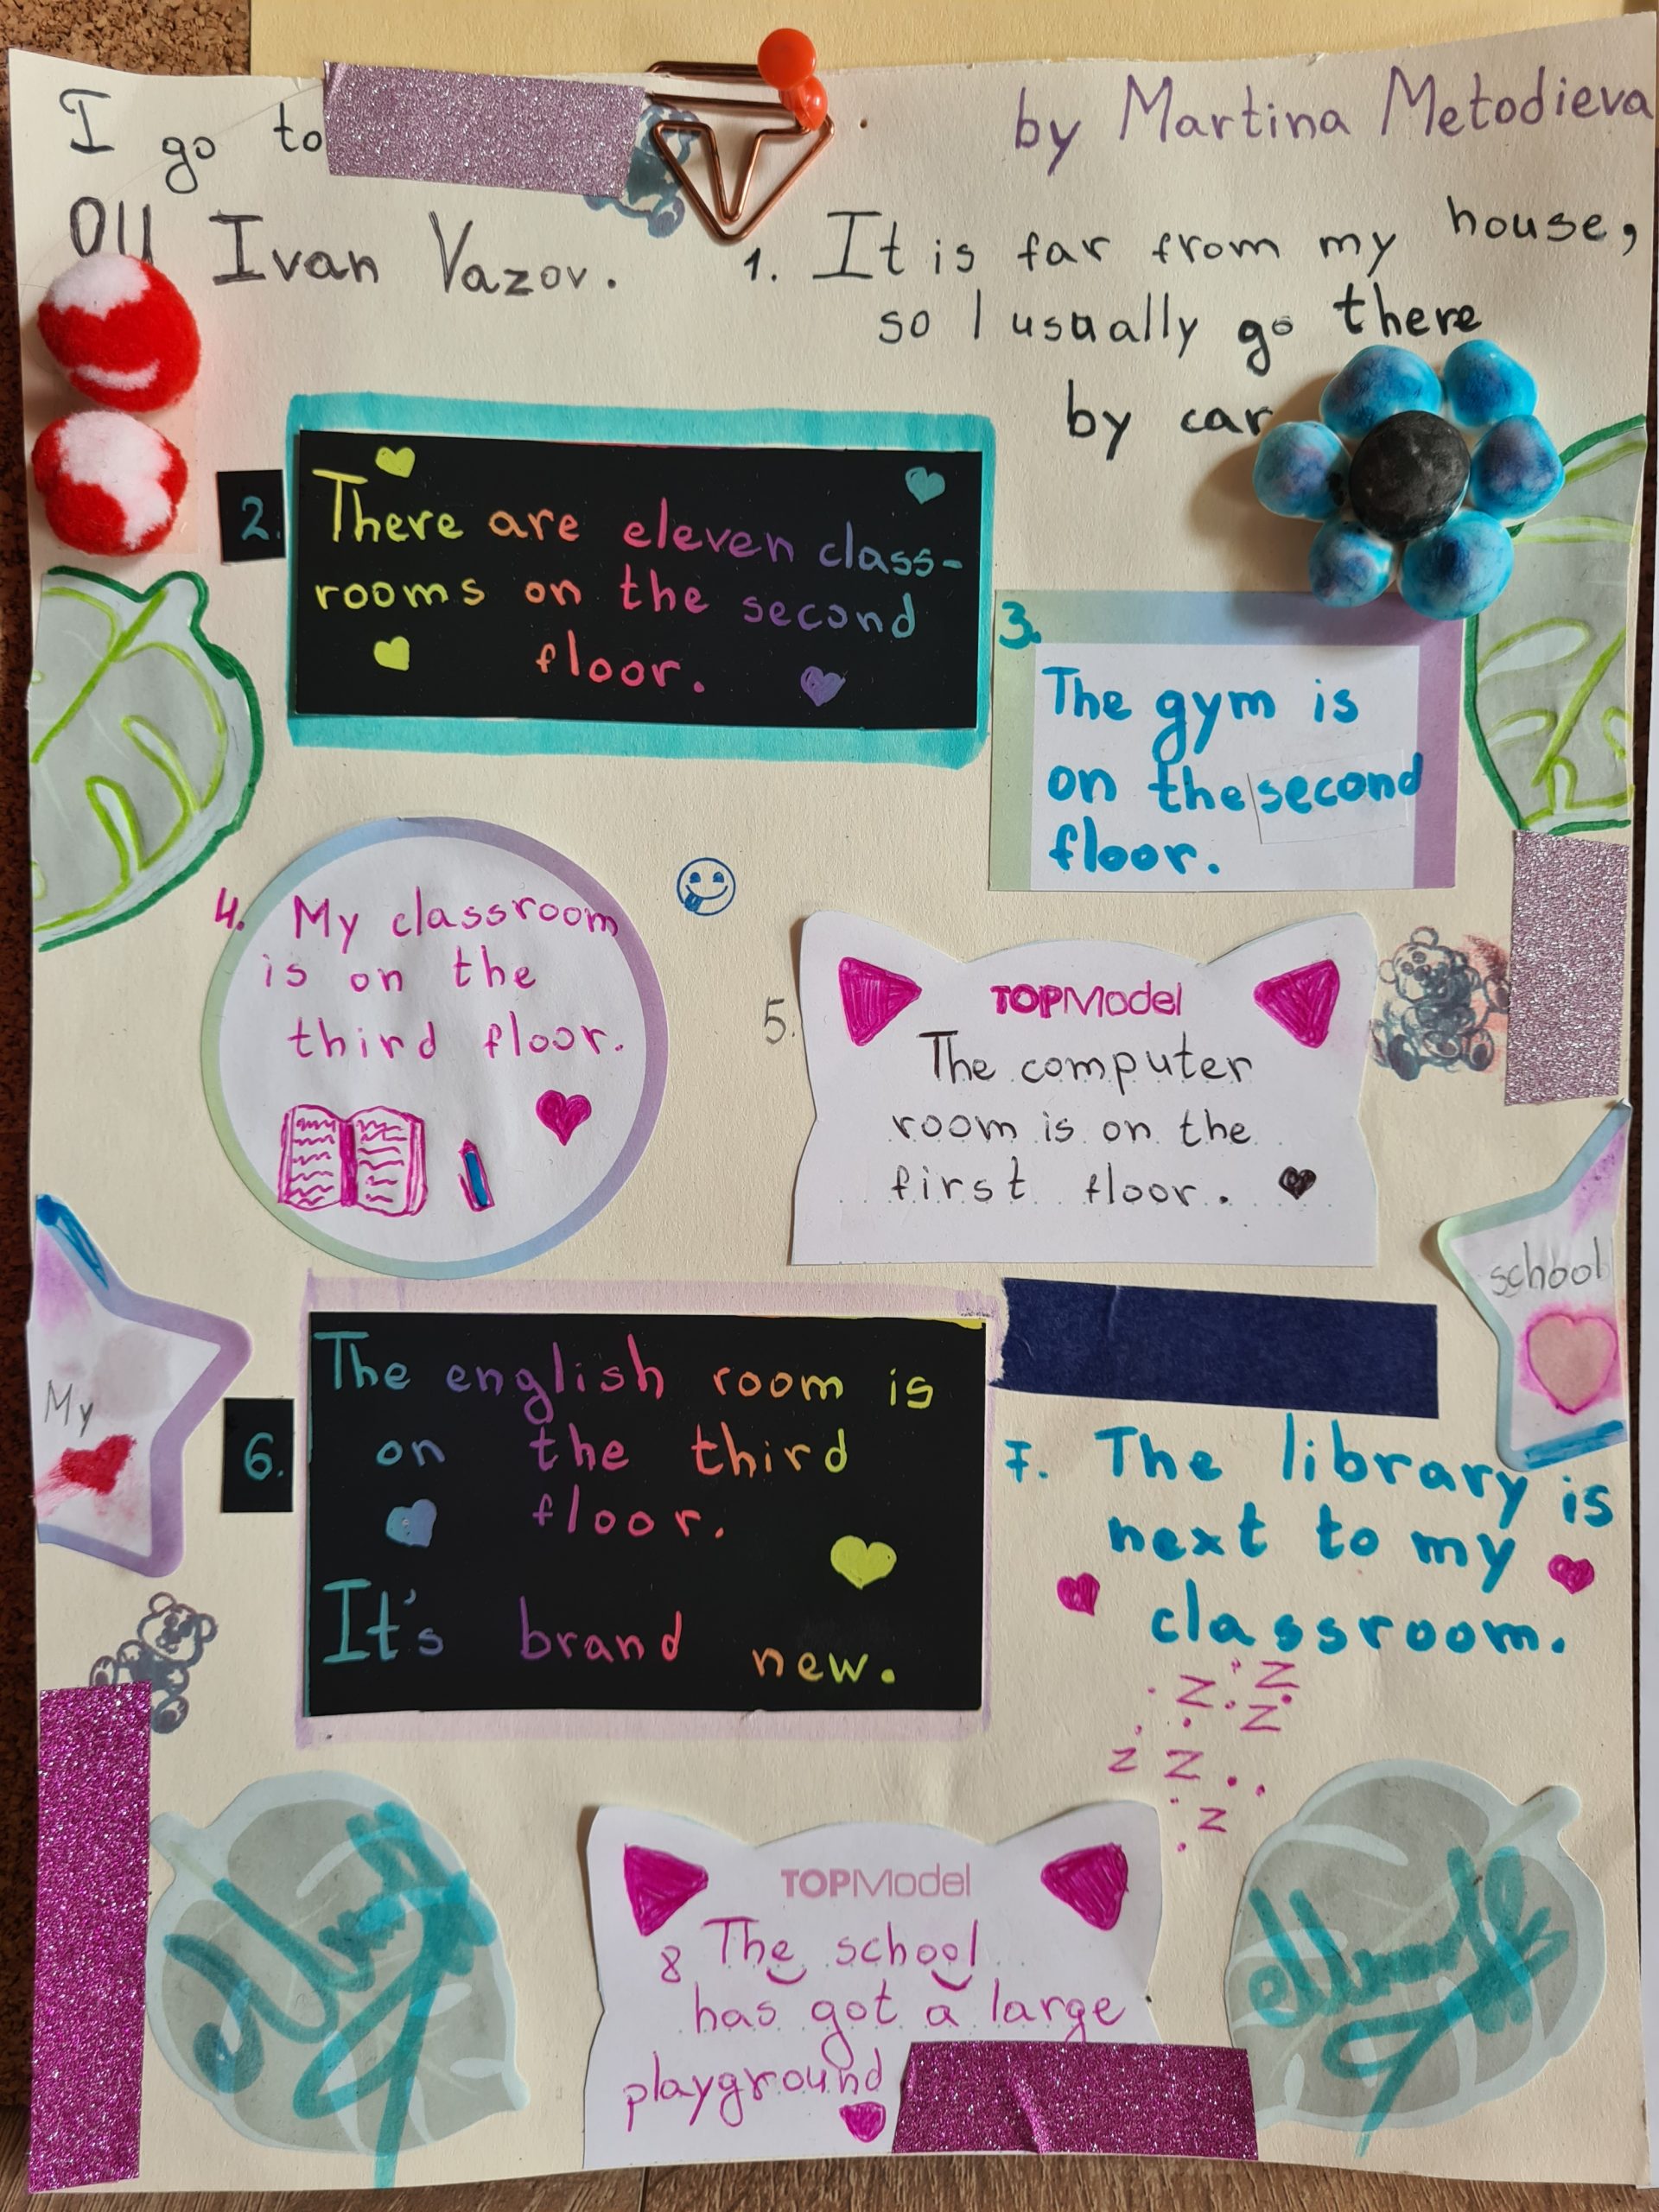 I go to
by Martina Metodieva
ОУ Ivan Vazov.
1. It is far from my house,
so I usually go there
by car
2. There are eleven class-
rooms on the second
floor.
3.
The gym is
on the second
floor.
4. My classroom
is on the
third floor.
5.
TOPModel
The computer
room is on the
first floor.
My
school
6.
The english room is
on the third
floor.
It's brand new.
7. The library is
next to my
classroom.
z z
z
z z
z
TOPModel
8 The school
has got a large
playground